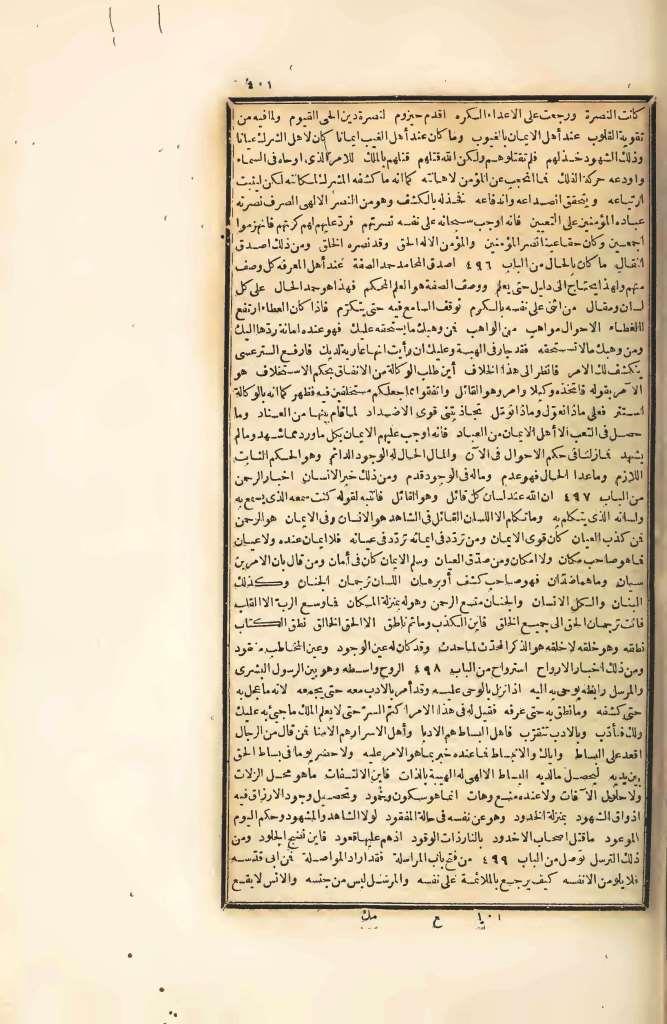 ٤٠١
كانت النصرة ورجعت على الاعداء الكره اقدم حيزوم لنصرة دين الحى القيوم ولما فيه من
تقوية القلوب عند أهل الايمان بالغيوب وما كان عند أهل الغيب ايمانا كان لاهل الشرك عيانا
وذلك الشهود خذلهم فلم تقتلوهم ولكن الله قتلهم قتلهم بالملك للامر الذى اوحاه فى السماء
واودعه حركة الفلك فما انحجب عن المؤمن لاهانته كما انه ما كشفه المشرك لمكانته لكن ليثبت
ارتياعه ويتحقق انصداعه واندفاعه فخذله بالكشف وهو من النصر الالهى الصرف نصرته
عباده المؤمنين على التعيين فانه اوجب سبحانه على نفسه نصرتهم فرد عليهم لهم كرتهم فانهزموا
اجمعين وكان حقا علينا نصر المؤمنين والمؤمن الاله الحق وقد نصره الخلق ومن ذلك اصدق
المقال ما كان بالحال من الباب ٤٩٦ اصدق المحامد حمد الصفة عند أهل المعرفه كل وصف
منهم ولهذا يحتاج الى دليل حتى يعلم ووصف الصفة هو العلم المحكم فهذا هو حمد الحال على كل
لسان ومقال من اثنى على نفسه بالكرم توقف السامع فيه حتى يتكرم فاذا كان العطاء ارتفع
الغطاء الاحوال مواهب من الواهب فمن وهبك ما يستحقه عليك فهو عنده امانة ردها اليك
ومن وهبك ما لا تستحقه فقد جار فى الهبة وعليك ان رأيت انها عارية لديك فارفع الستر عسى
ينكشف لك الامر فانظر الى هذا الخلاف أين طلب الوكالة من الانفاق بحكم الاستخلاف هو
الآمر بقوله فاتخذه وكيلا وامر وهو القائل وانفقوا مما جعلكم مستخلفين فيه فظهر كما انه بالوكالة
استتر فعلى ماذا نعول وماذا نؤمل تجاذبتنى قوى الاضداد لما قام بينها من العناد وما
حصل فى التعب الا أهل الايمان من العباد فانه اوجب عليهم الايمان بكل ما ورد مما شهد ومالم
يشهد فما زلنا فى حكم الاحوال فى الآن والمال الحال له الوجود الدائم وهو الحكم الثابت
اللازم وما عدا الحال فهو عدم وماله فى الوجود قدم ومن ذلك خبر الانسان اخبار الرحمن
من الباب ٤٩٧ ان الله عند لسان كل قائل وهو القائل فانتبه لقوله كنت سمعه الذى يسمع به
ولسانه الذى يتكلم به وما تكلم الا اللسان القائل فى الشاهد هو الانسان وفى الايمان هو الرحمن
فمن كذب العيان كان قوى الايمان ومن تردد فى ايمانه تردد فى عيانه فلا ايمان عنده ولا عيان
فما هو صاحب مكان ولا امكان ومن صدق العيان وسلم الايمان كان فى أمان ومن قال بان الامرين
سيان وما هما ضدان فهو صاحب كشف أو برهان اللسان ترجمان الجنان وكذلك
البنان والكل الانسان والجنان متسع الرحمن وهو له بمنزلة المكان فما وسع الرب الا القلب
فانت ترجمان الحق الى جميع الخلق فاين الكذب وما تم ناطق الا الحق الخالق نطق الكتاب
نطقه وهو خلقه لا خلقه هو الذكر المحدث لما حدث وقد كان له عين الوجود وعين المخاطب مفقود
ومن ذلك اخبار الارواح استرواح من الباب ٤٩٨ الروح واسطه وهو بين الرسول البشرى
والمرسل رابطه يوحى به اليه اذا نزل بالوحى عليه وقد أمر بالادب معه حتى يجمعه لانه ما عجل به
حتى كشفه وما نطق به حتى عرفه فقيل له فى هذا الامر اكتم السر حتى لا يعلم الملك ما جئ به عليك
ولك فتأدب وبالادب تتقرب فاهل البساط هم الادبا وأهل الاسرار هم الامنا فمن قال من الرجال
اقعد على البساط واياك والانبساط فما عنده خبر بما هو الامر عليه ولا حضر يوما فى بساط الحق
بين يديه ليحصل ما لديه البساط الالهى له الهيبة بالذات فاين الالتفات ما هو محل الزلات
ولا حلول الآفات ولا عنده منع وهات انما هو سكون وخمود وتحصيل وجود الارزاق فيه
اذواق الشهود بمنزلة الخدود وهو عن نفسه فى حالة المفقود لولا الشاهد والمشهود وحكم اليوم
الموعود ما قتل اصحاب الاخدود بالنار ذات الوقود اذ هم عليها قعود فاين نضج الجلود ومن
ذلك الترسل توصل من الباب ٤٩٩ من فتح باب المراسلة فقد اراد المواصلة فمن ابى قدسه
فلا يلم الا نفسه كيف يرجع بالملائمة على نفسه والمرسل ليس من جنسه والانس لا يقع
١٠١ ع مك